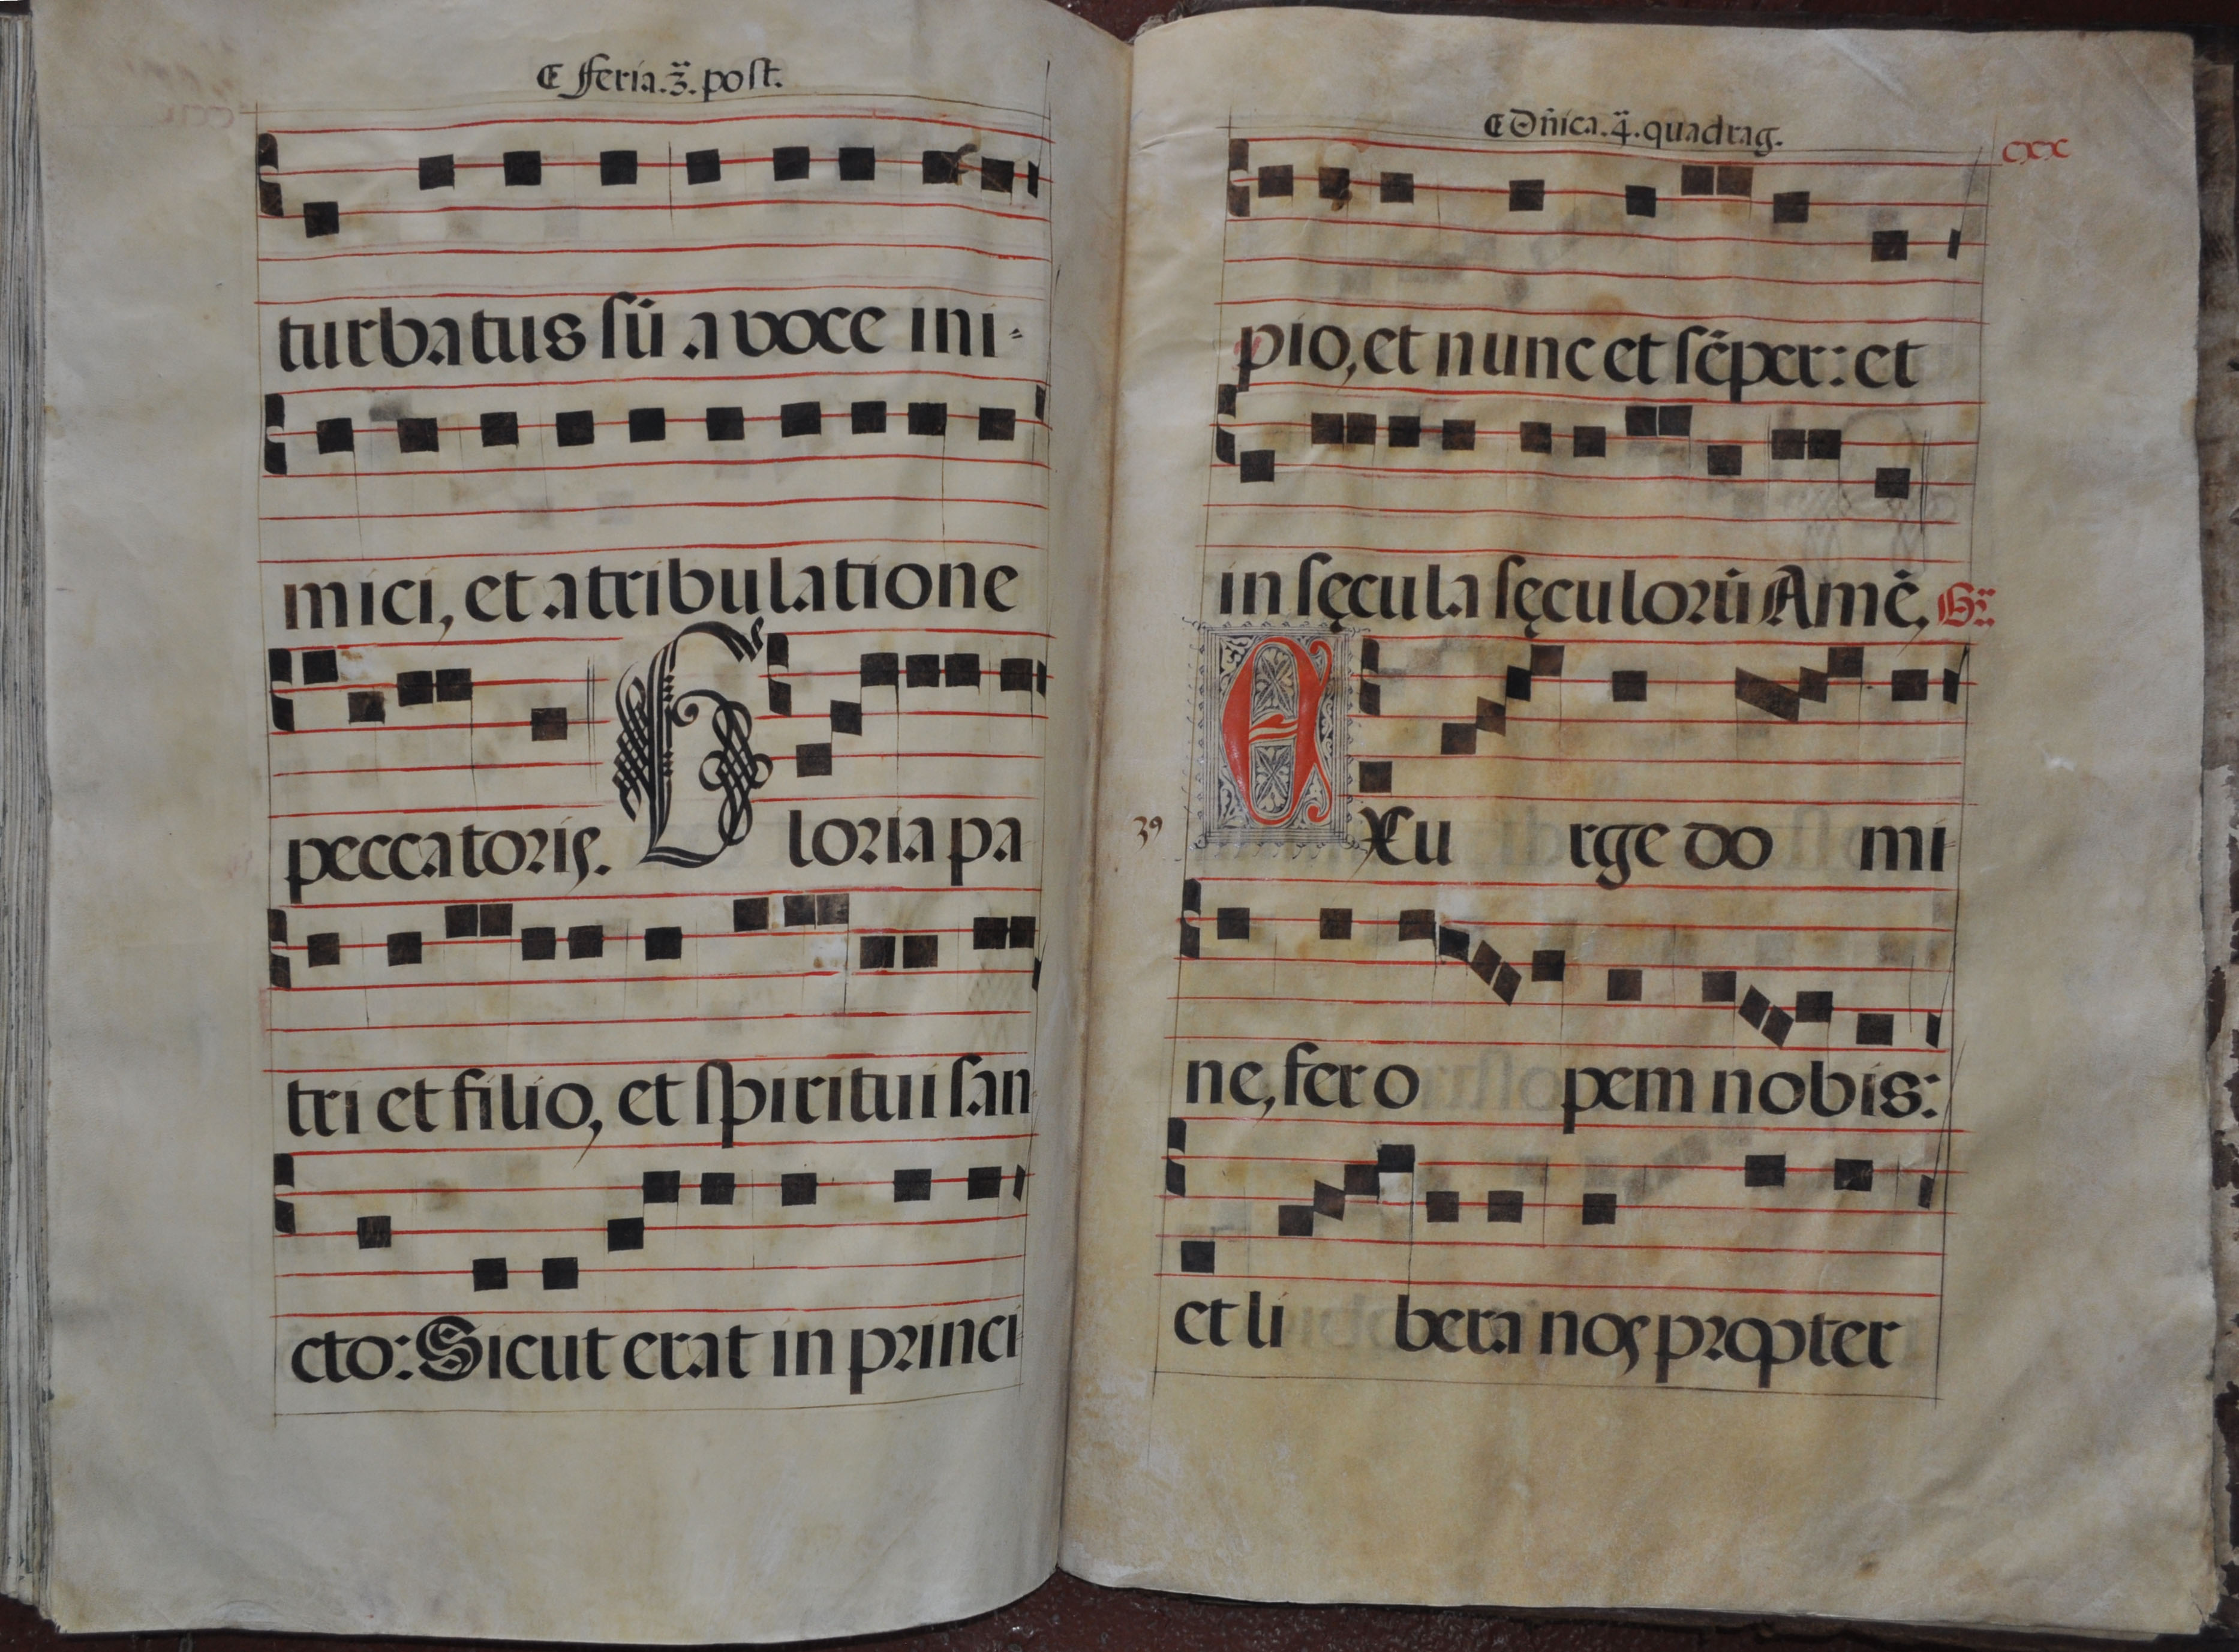 Feria.3.ª post.
turbatus sũ a voce ini-
mici, et a tribulatione
peccatoris. Gloria pa
tri et filio, et spiritui san
cto: Sicut erat in princi
Dñica.4.ª quadrag.
cxx
pio, et nunc et sẽper: et
in sęcula sęculorũ Amẽ, Gr.
39
EXurge domi
ne, fer opem nobis:
et libera nos propter